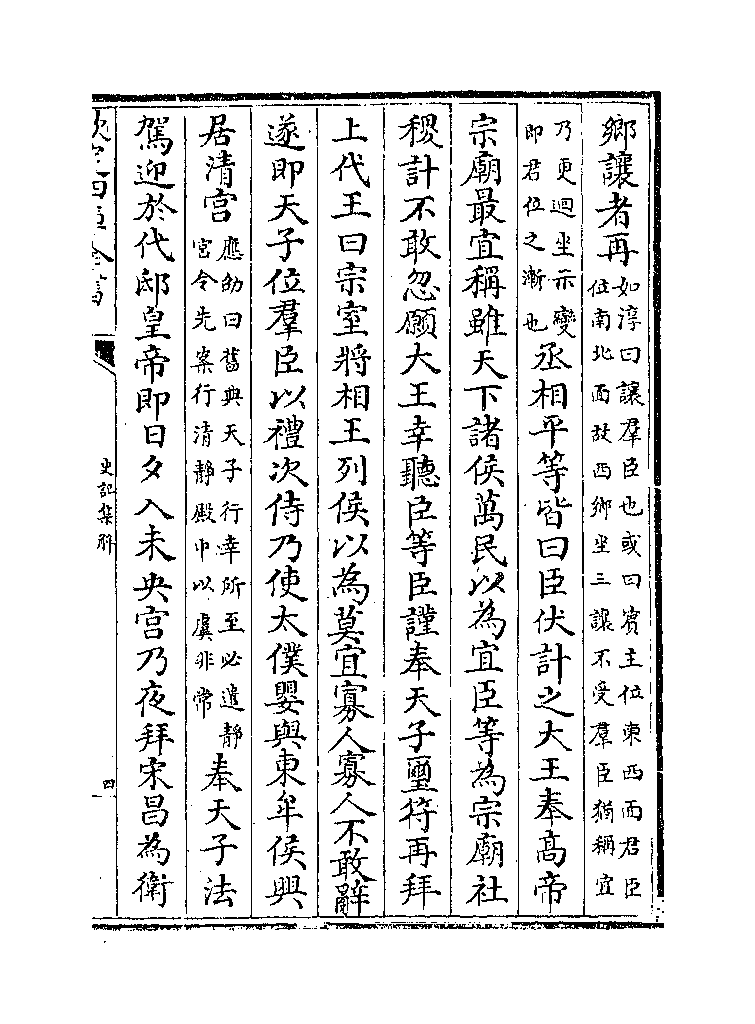 鄉讓者再如淳曰讓羣臣也或曰賓主位東西面君臣位南北面故西鄉坐三讓不受羣臣猶稱宜
乃更迴坐示變即君位之漸也丞相平等皆曰臣伏計之大王奉高帝
宗廟最宜稱雖天下諸侯萬民以為宜臣等為宗廟社
稷計不敢忽願大王幸聽臣等臣謹奉天子璽符再拜
上代王曰宗室將相王列侯以為莫宜寡人寡人不敢辭
遂即天子位羣臣以禮次侍乃使太僕嬰與東牟侯興
居清宮應劭曰舊典天子行幸所至必遣靜宮令先案行清靜殿中以虞非常奉天子法
駕迎於代邸皇帝即日夕入未央宫乃夜拜宋昌為衛
欽定四庫全書
史記集解
四